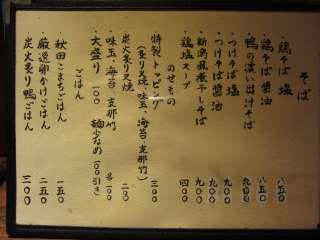 そば
鶏そば 塩 八五〇
鶏そば 醤油 八五〇
鴨の淡い出汁そば 九〇〇
つけそば 塩 九〇〇
つけそば 醤油 九〇〇
新潟風煮干しそば 九〇〇
鶏塩スープ 四〇〇
のせもの
特製トッピング 三〇〇
(炙り叉焼、味玉、海苔、支那竹)
炭火炙り叉焼 二〇〇
味玉、海苔、支那竹 各一〇〇
大盛り 一〇〇 麺少なめ 一〇〇引き
ごはん
秋田こまちごはん 一五〇
厳選卵かけごはん 二五〇
炭火炙り鴨ごはん 三〇〇